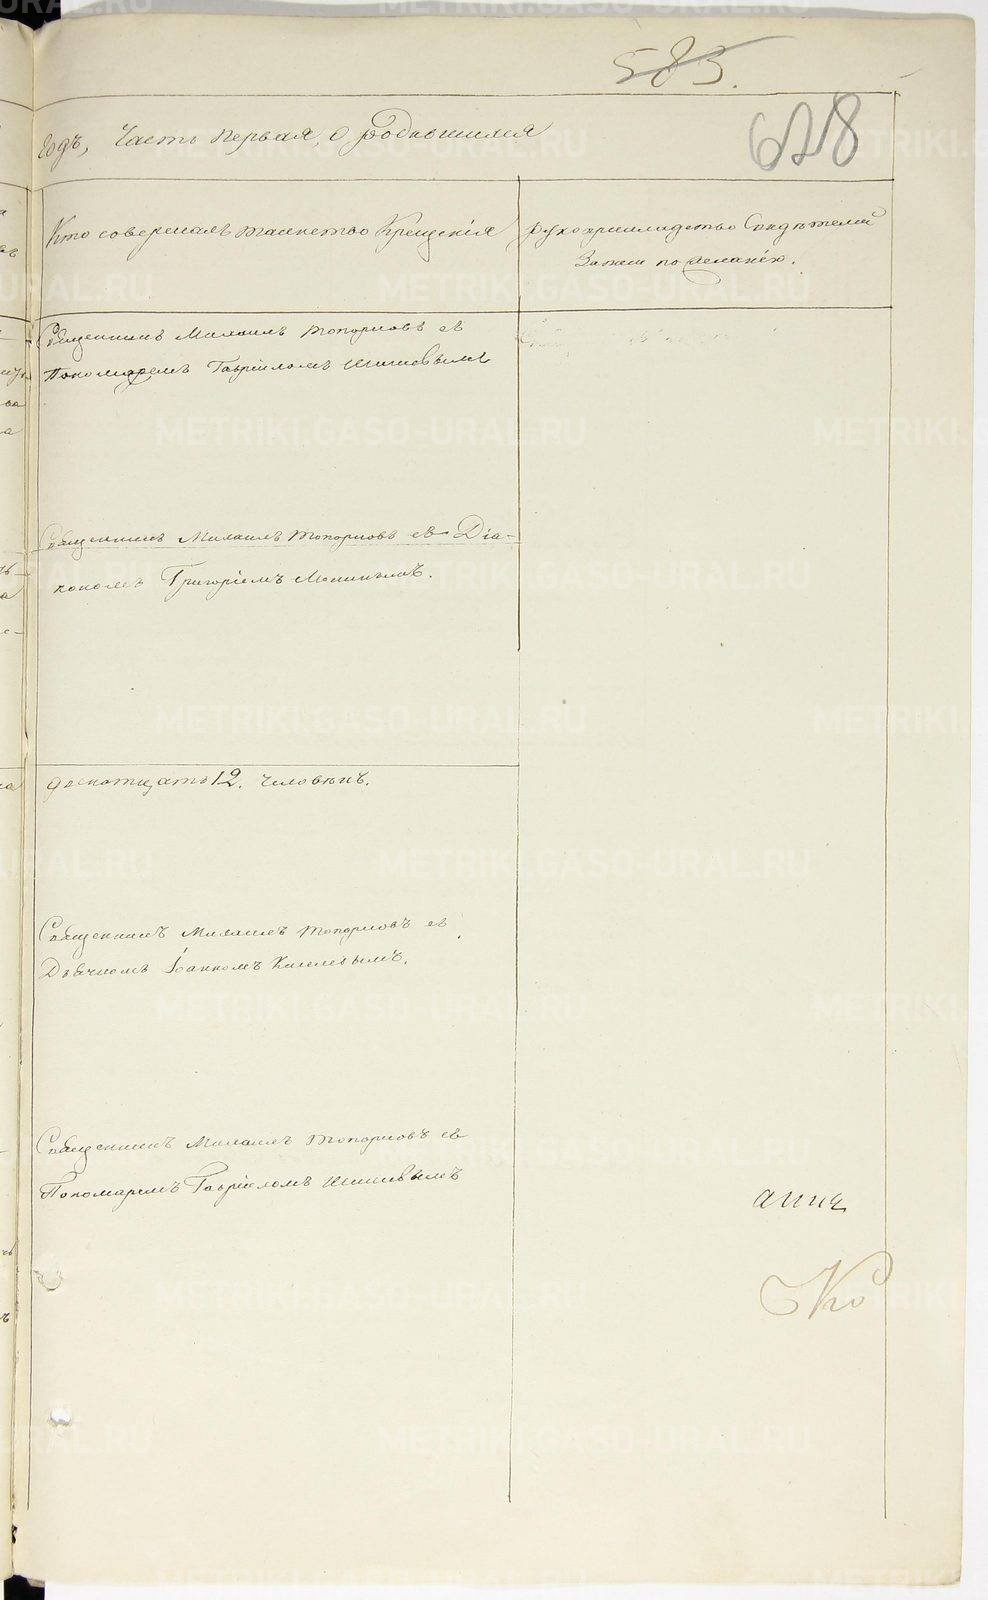 585.
628
Годъ, Часть первая, о родившихся
Кто совершалъ таинство Крещенія
рукоприкладство Свидѣтелей
записи по желанію.
Священникъ Михаилъ Топорковъ съ
Пономаремъ Гавріиломъ
Священникъ Михаилъ Топорковъ съ Діа-
кономъ Григоріемъ
двенатцать 12. человѣкъ.
Священникъ Михаилъ Топорковъ съ
Дьячкомъ Іоанномъ Киселевымъ.
Священникъ Михаилъ Топорковъ съ
Пономаремъ Гавріиломъ
METRIKI.GASO-URAL.RU